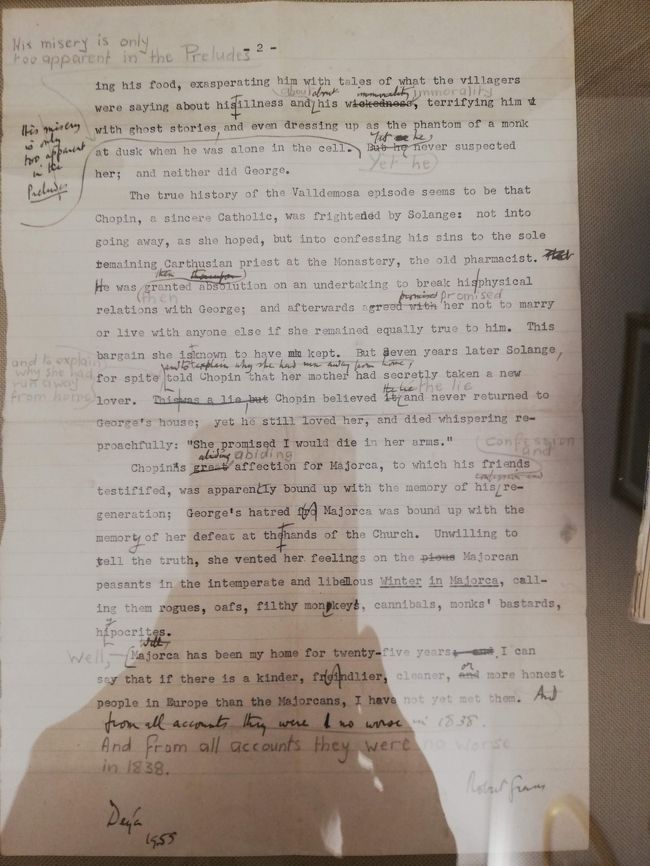 His misery is only
too apparent in the Preludes
- 2 -
ing his food, exasperating him with tales of what the villagers
about about immorality immorality
were saying about his illness and his wickedness, terrifying him
with ghost stories, and even dressing up as the phantom of a monk
His misery
is only
too apparent
in the
Preludes
Yet he,
at dusk when he was alone in the cell. But he never suspected
Yet he
her; and neither did George.
The true history of the Valldemosa episode seems to be that
Chopin, a sincere Catholic, was frightened by Solange: not into
going away, as she hoped, but into confessing his sins to the sole
remaining Carthusian priest at the Monastery, the old pharmacist.
then
He was granted absolution on an undertaking to break his physical
then promised promised
relations with George; and afterwards agreed with her not to marry
or live with anyone else if she remained equally true to him. This
bargain she is known to have kept. But seven years later Solange,
and to explain why she had run away from home,
and to explain
why she had
run away
from home
for spite told Chopin that her mother had secretly taken a new
the lie the lie
lover. This was a lie, but Chopin believed it, and never returned to
George's house; yet he still loved her, and died whispering re-
proachfully: "She promised I would die in her arms."
confession
and
abiding abiding
Chopin's great affection for Majorca, to which his friends
confession and
testififed, was apparently bound up with the memory of his re-
generation; George's hatred Majorca was bound up with the
memory of her defeat at the hands of the Church. Unwilling to
tell the truth, she vented her feelings on the pious Majorcan
peasants in the intemperate and libellous Winter in Majorca, call-
ing them rogues, oafs, filthy monkeys, cannibals, monks' bastards,
y
hipocrites.
Well,
Well,
Majorca has been my home for twenty-five years. I can
or
say that if there is a kinder, freindlier, cleaner, and more honest
people in Europe than the Majorcans, I have not yet met them. And
from all accounts they were no worse in 1838.
And from all accounts they were no worse
in 1838.
Robert Graves
Deyá
1955